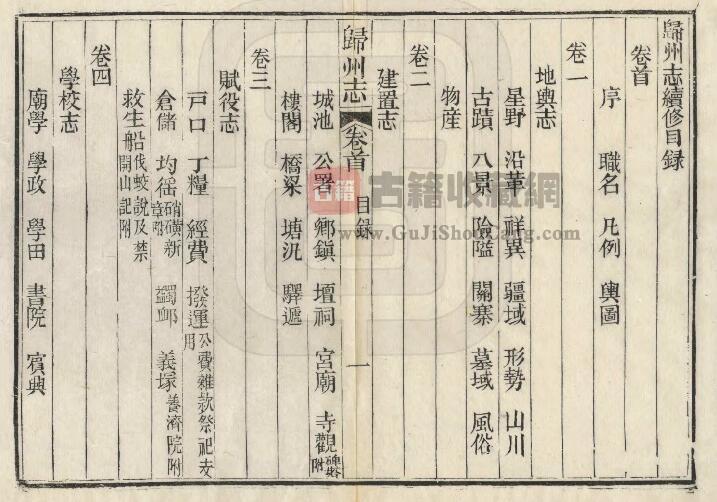 歸州志續修目錄
卷首
序 職名 凡例 輿圖
卷一
地輿志
星野 沿革 祥異 疆域 形勢 山川
古蹟 八景 險隘 關寨 墓域 風俗
物産
卷二
建置志
城池 公署 鄉鎮 壇祠 宮廟 寺觀碑塔附
樓閣 橋梁 塘汛 驛遞
歸州志 卷首 目錄 一
卷三
賦役志
戶口 丁糧 經費 撥運公費雜款祭祀支用
倉儲 均徭硝磺新章附 蠲卹 義塚養濟院附
救生船伐蛟說及禁開山記附
卷四
學校志
廟學 學政 學田 書院 賓興
古籍 古籍收藏網
www.GuJiShouCang.com